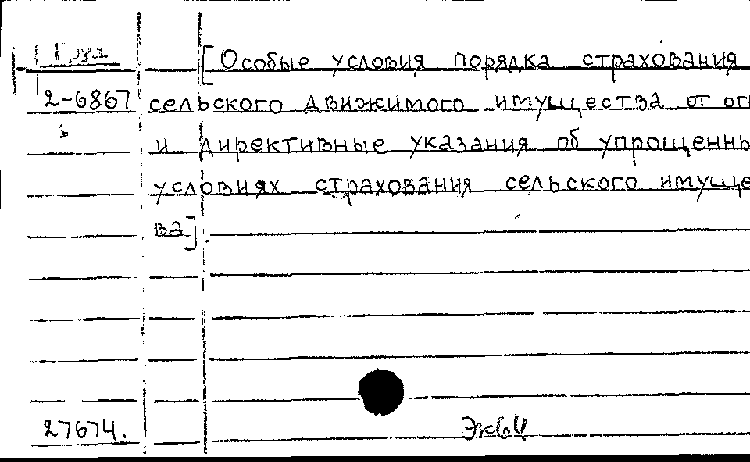 [Особые условия порядка страхования
2-6867 сельского движимого имущества от ог
и директивные указания об упрощенны
условиях страхования сельского имуще
ва]
27674.